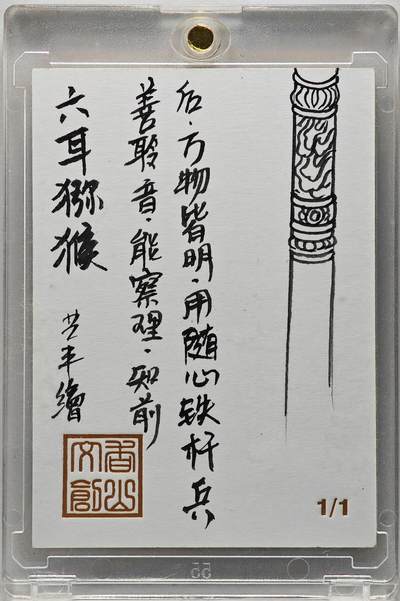 六耳猕猴
善聆音·能察理·知前
后·万物皆明·用随心铁杆兵
丰繪
香山文創
1/1